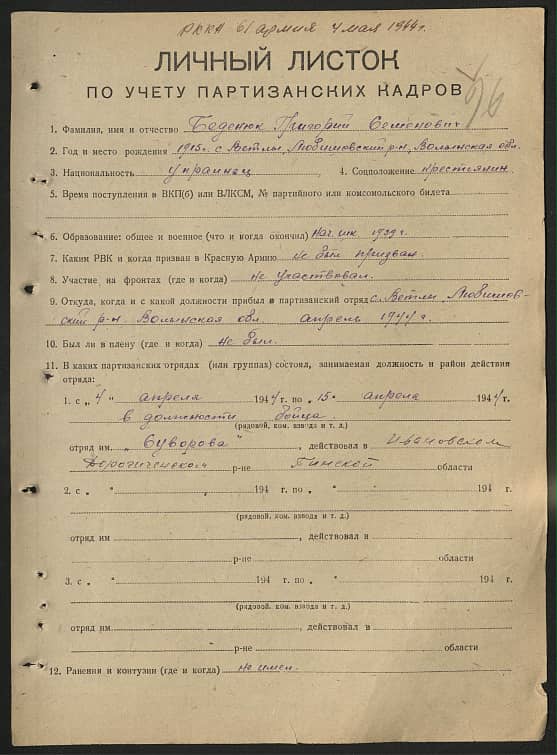 РККА 61 армия 4 мая 1944г.
ЛИЧНЫЙ ЛИСТОК
ПО УЧЕТУ ПАРТИЗАНСКИХ КАДРОВ
1. Фамилия, имя и отчество Беденюк Григорий Семенович
2. Год и место рождения 1915г. с Ветлы, Любишовский р-н, Волынская обл.
3. Национальность украинец 4. Соцположение крестьянин
5. Время поступления в ВКП(б) или ВЛКСМ, № партийного или комсомольского билета
6. Образование: общее и военное (что и когда окончил) нач. шк. 1939г.
7. Каким РВК и когда призван в Красную Армию не был призван.
8. Участие на фронтах (где и когда) не участвовал.
9. Откуда, когда и с какой должности прибыл в партизанский отряд с. Ветлы Любишов-
ский р-н. Волынская обл. апрель 1944г.
10. Был ли в плену (где и когда) не был.
11. В каких партизанских отрядах (или группах) состоял, занимаемая должность и район действия
отряда:
1. с „ 4 " апреля 1944 г. по „ 15 " апреля 1944 г.
в должности бойца.
(рядовой, ком. взвода и т. д.)
отряд им. „Суворова" , действовал в Ивановском
Дорогиченском р-не Пинской области
2. с „ " 194 г. по „ " 194 г.
(рядовой, ком. взвода и т. д.)
отряд им , действовал в
р-не области
3. с „ " 194 г. по „ " 194 г.
(рядовой, ком. взвода и т. д.)
отряд им. , действовал в
р-не области
12. Ранения и контузии (где и когда) не имел.